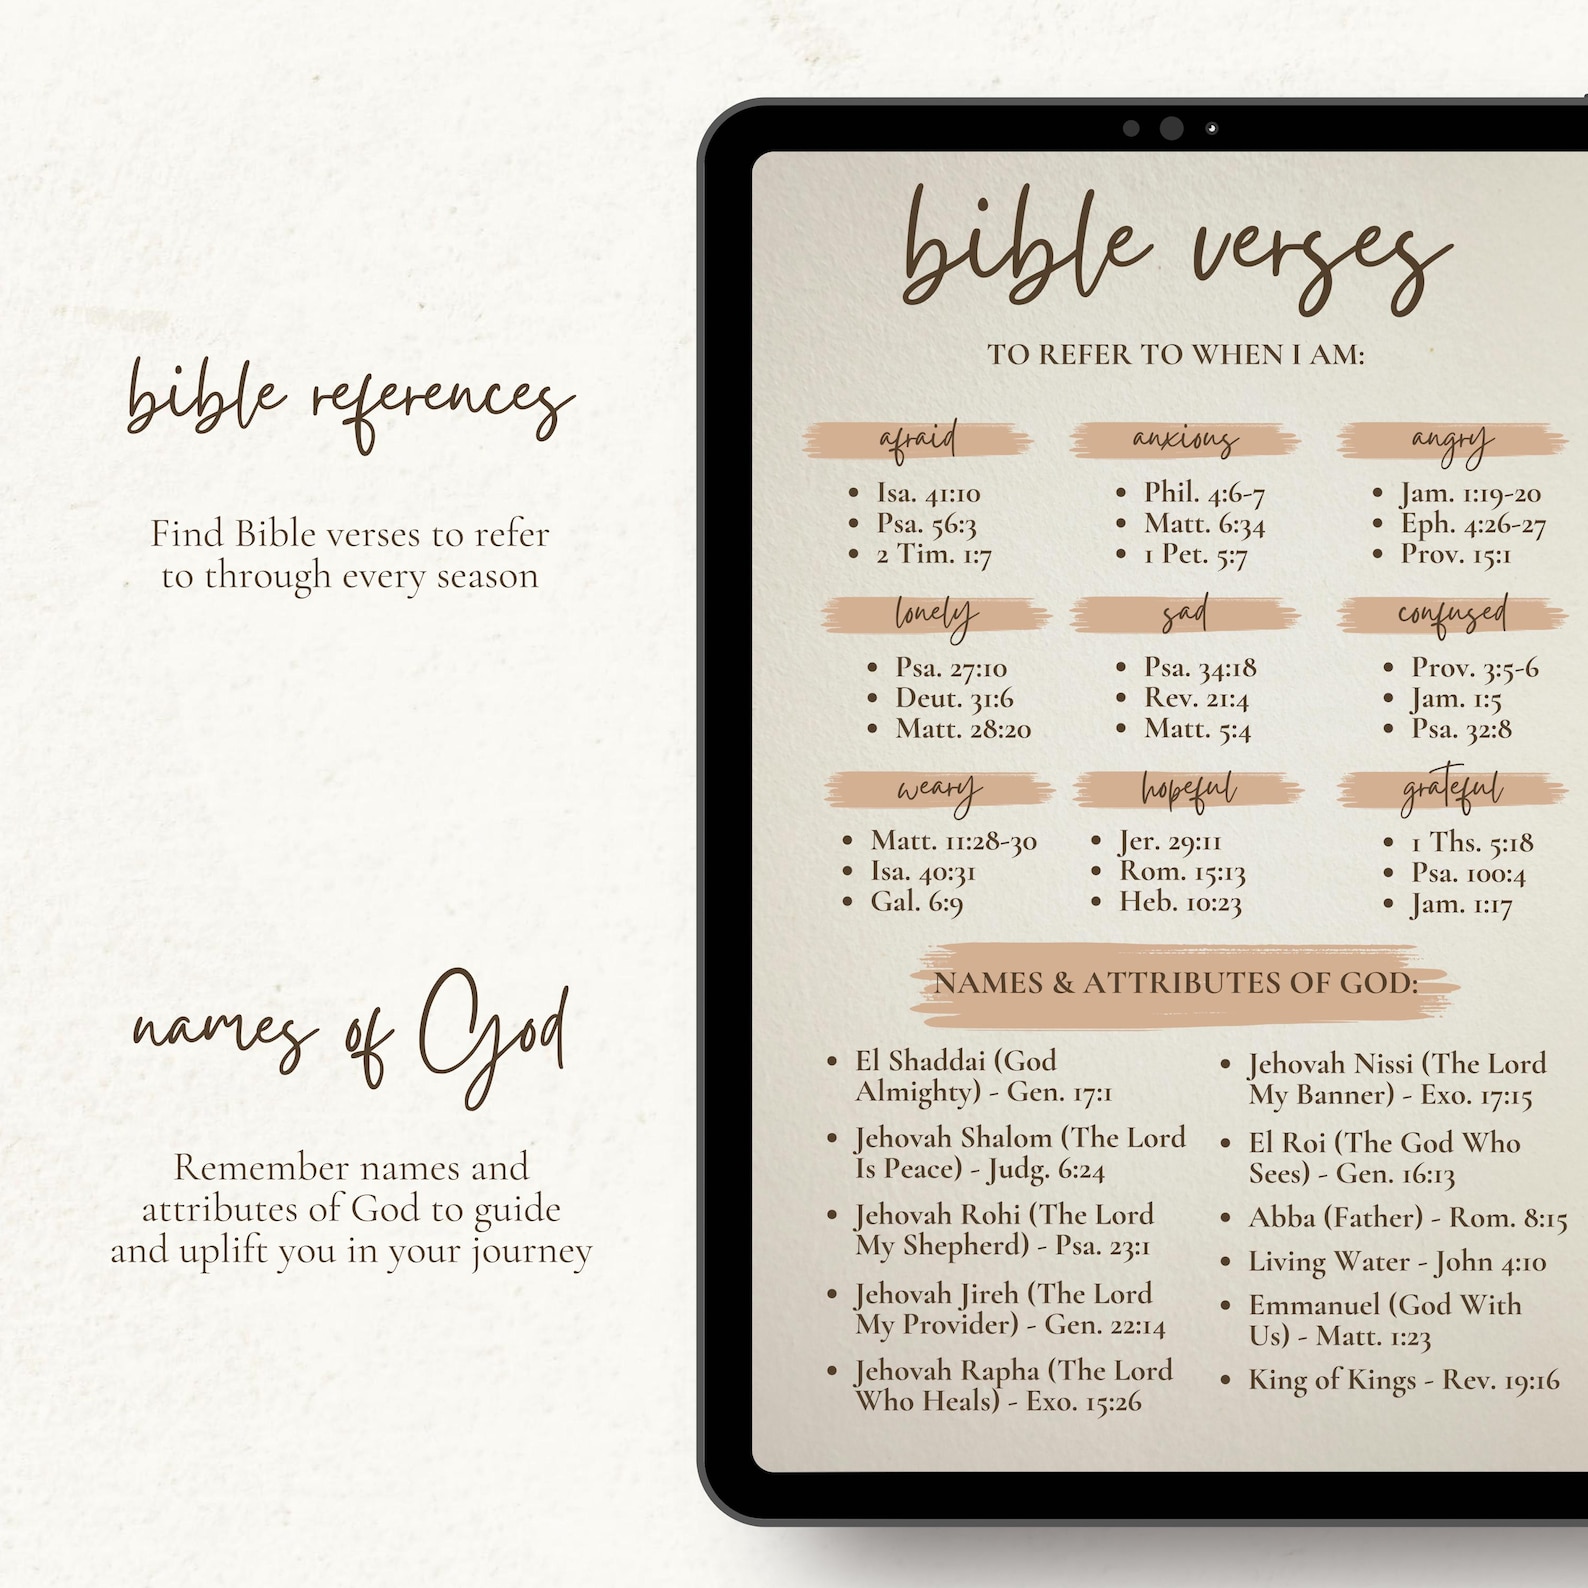 bible references
Find Bible verses to refer
to through every season
names of God
Remember names and
attributes of God to guide
and uplift you in your journey
bible verses
TO REFER TO WHEN I AM:
afraid
• Isa. 41:10
• Psa. 56:3
• 2 Tim. 1:7
anxious
• Phil. 4:6-7
• Matt. 6:34
• 1 Pet. 5:7
angry
• Jam. 1:19-20
• Eph. 4:26-27
• Prov. 15:1
lonely
• Psa. 27:10
• Deut. 31:6
• Matt. 28:20
sad
• Psa. 34:18
• Rev. 21:4
• Matt. 5:4
confused
• Prov. 3:5-6
• Jam. 1:5
• Psa. 32:8
weary
• Matt. 11:28-30
• Isa. 40:31
• Gal. 6:9
hopeful
• Jer. 29:11
• Rom. 15:13
• Heb. 10:23
grateful
• 1 Ths. 5:18
• Psa. 100:4
• Jam. 1:17
NAMES & ATTRIBUTES OF GOD:
• El Shaddai (God
Almighty) - Gen. 17:1
• Jehovah Shalom (The Lord
Is Peace) - Judg. 6:24
• Jehovah Rohi (The Lord
My Shepherd) - Psa. 23:1
• Jehovah Jireh (The Lord
My Provider) - Gen. 22:14
• Jehovah Rapha (The Lord
Who Heals) - Exo. 15:26
• Jehovah Nissi (The Lord
My Banner) - Exo. 17:15
• El Roi (The God Who
Sees) - Gen. 16:13
• Abba (Father) - Rom. 8:15
• Living Water - John 4:10
• Emmanuel (God With
Us) - Matt. 1:23
• King of Kings - Rev. 19:16